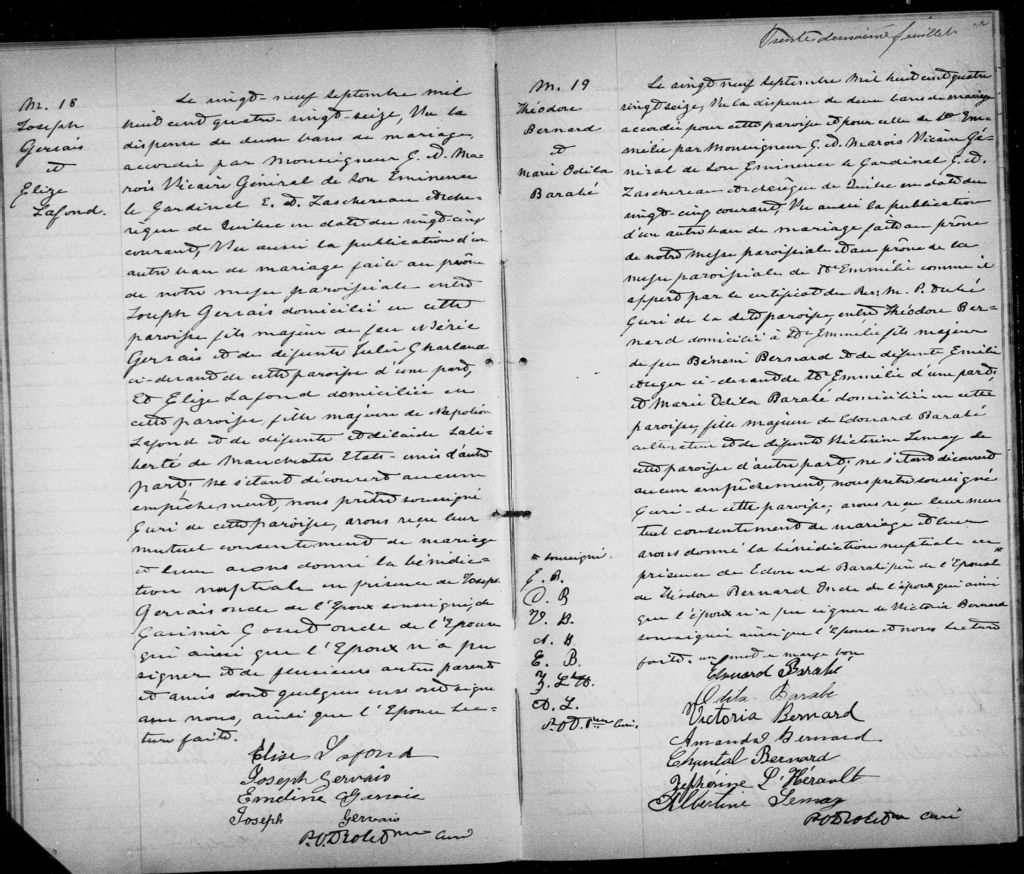 M. 18
Joseph
Gervais
et
Elize
Lafond.
Le vingt-neuf septembre mil
huit cent quatre-vingt-seize, Vu la
dispense de deux bans de mariage
accordée par Monseigneur C. A. Ma-
rois Vicaire Général de Son Eminence
le Cardinal E. A. Taschereau Arche-
vêque de Québec en date du vingt-cinq
courant, Vu aussi la publication d'un
autre ban de mariage faite au prône
de notre messe paroissiale entre
Joseph Gervais domicilié en cette
paroisse fils majeur de feu Nérée
Gervais et de défunte Julie Gharland
ci-devant de cette paroisse d'une part,
Et Elize Lafond domiciliée en
cette paroisse, fille majeure de Napoléon
Lafond et de défunte Adélaide Lali-
berté de Manchester Etats-unis d'autre
part; ne s'étant découvert aucun
empêchement, nous prêtre soussigné
Curé de cette paroisse, avons reçu leur
mutuel consentement de mariage
et leur avons donné la bénédic-
tion nuptiale en présence de Joseph
Gervais oncle de l'Epoux soussigné, de
Casimir oncle de l'Epouse
qui ainsi que l'Epoux n'a pu
signer et de plusieurs autres parents
et amis dont quelques uns ont signé
avec nous, ainsi que l'Epouse Lec-
ture faite.
Elise Lafond
Joseph Gervais
Emeline Gervais
Joseph Gervais
Ptre Curé
Trente deuxième feuillet
M. 19
Théodore
Bernard
et
Marie Odila
Barabé
Le vingt neuf septembre mil huit cent quatre
vingt seize, Vu la dispense de deux bans de mariage
accordée pour cette paroisse et pour celle de Ste Em-
mélie par Monseigneur C. A. Marois Vicaire Gé-
néral de Son Eminence le Cardinal E. A.
Taschereau Archevêque de Québec en date du
vingt-cinq courant, Vu aussi la publication
d'un autre ban de mariage fait au prône
de notre Messe paroissiale et au prône de la
messe paroissiale de Ste Emmélie comme il
appert par le certificat du Rev. M. P. Dubé
Curé de la dite paroisse, entre Théodore Ber-
nard domicilié à Ste Emmélie fils majeur
de feu Bénoni Bernard et de défunte Emilie
Auger ci-devant de Ste Emmélie d'une part;
et Marie Odila Barabé domiciliée en cette
paroisse, fille majeure de Edouard Barabé
cultivateur et de défunte Victorine Lemay de
cette paroisse d'autre part; ne s'étant découvert
aucun empêchement, nous prêtre soussigné
Curé de cette paroisse, avons reçu leur mu-
tuel consentement de mariage et leur
avons donné la bénédiction nuptiale en
présence de Edouard Barabé père de l'Epouse*
de Théodore Bernard Oncle de l'époux qui ainsi
que l'époux n'a pu signer de Victoria Bernard
soussignée ainsi que l'Epouse et nous Lecture
faite. un mot en marge bon
* soussigné.
E. B.
O. B
V. B.
A. B
E. B.
Z. L'H.
A. L.
Ptre Curé.
Edouard Barabé
Odila Barabé
Victoria Bernard
Amanda Bernard
Chantal Bernard
Zépherine L'Hérault
Albertine Lemay
Ptre Curé